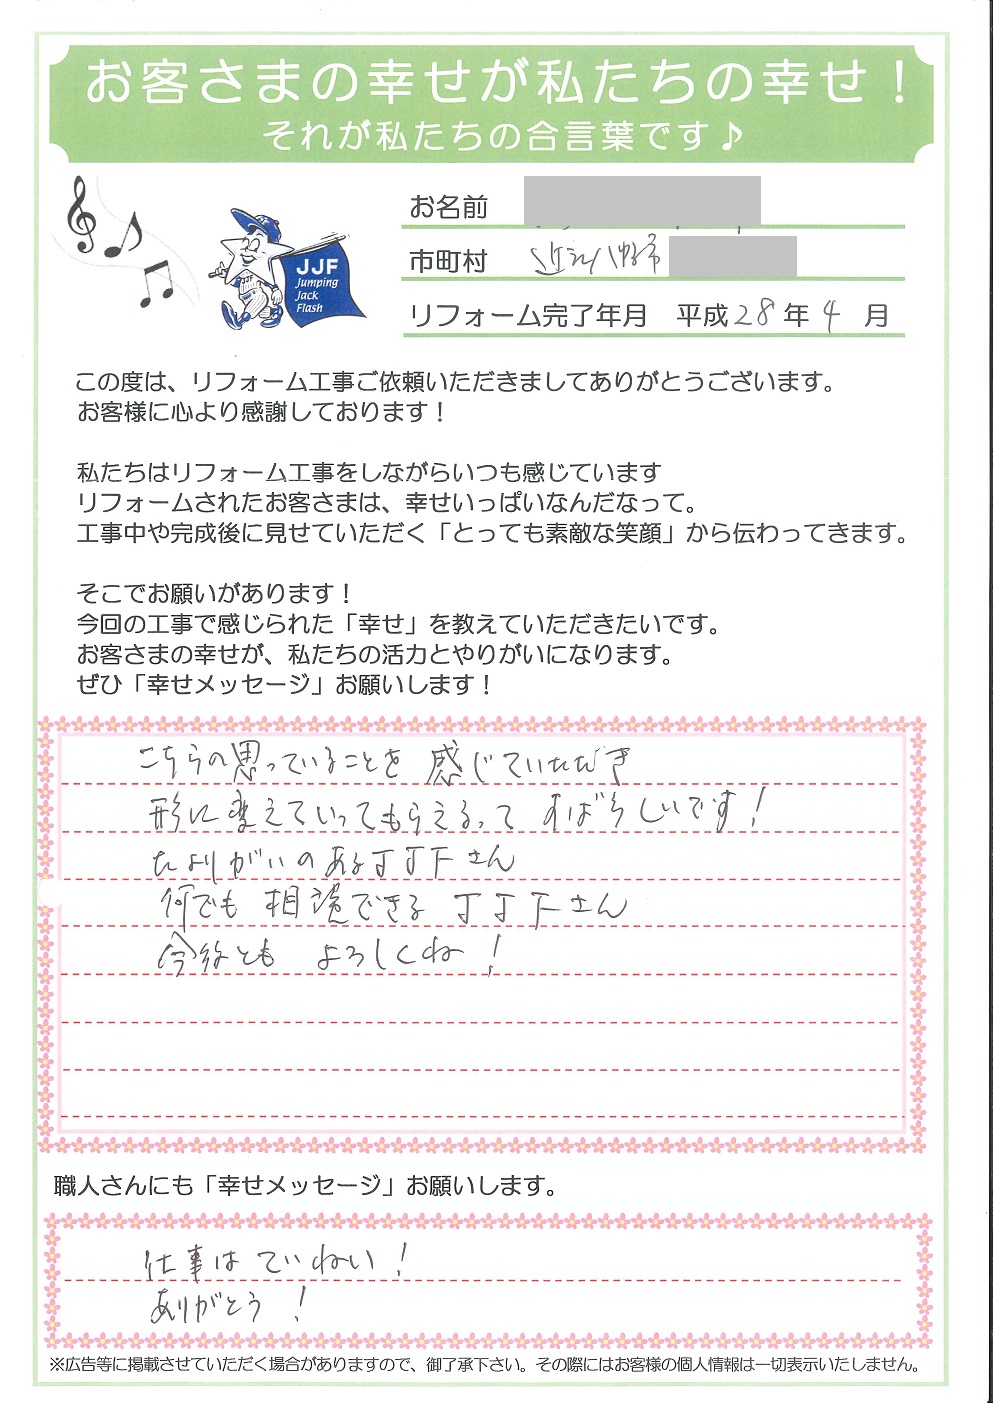 お客さまの幸せが私たちの幸せ！
それが私たちの合言葉です♪
JJF
Jumping
Jack
Flash
お名前
市町村 近江八幡市
リフォーム完了年月 平成28年4月
この度は、リフォーム工事ご依頼いただきましてありがとうございます。
お客様に心より感謝しております！
私たちはリフォーム工事をしながらいつも感じています
リフォームされたお客さまは、幸せいっぱいなんだなって。
工事中や完成後に見せていただく「とっても素敵な笑顔」から伝わってきます。
そこでお願いがあります！
今回の工事で感じられた「幸せ」を教えていただきたいです。
お客さまの幸せが、私たちの活力とやりがいになります。
ぜひ「幸せメッセージ」お願いします！
こちらの思っていることを 感じていただき
形に変えていってもらえるって すばらしいです！
たよりがいのあるJJFさん
何でも 相談できる JJFさん
今後とも よろしくね！
職人さんにも「幸せメッセージ」お願いします。
仕事は ていねい！
ありがとう！
※広告等に掲載させていただく場合がありますので、御了承下さい。その際にはお客様の個人情報は一切表示いたしません。